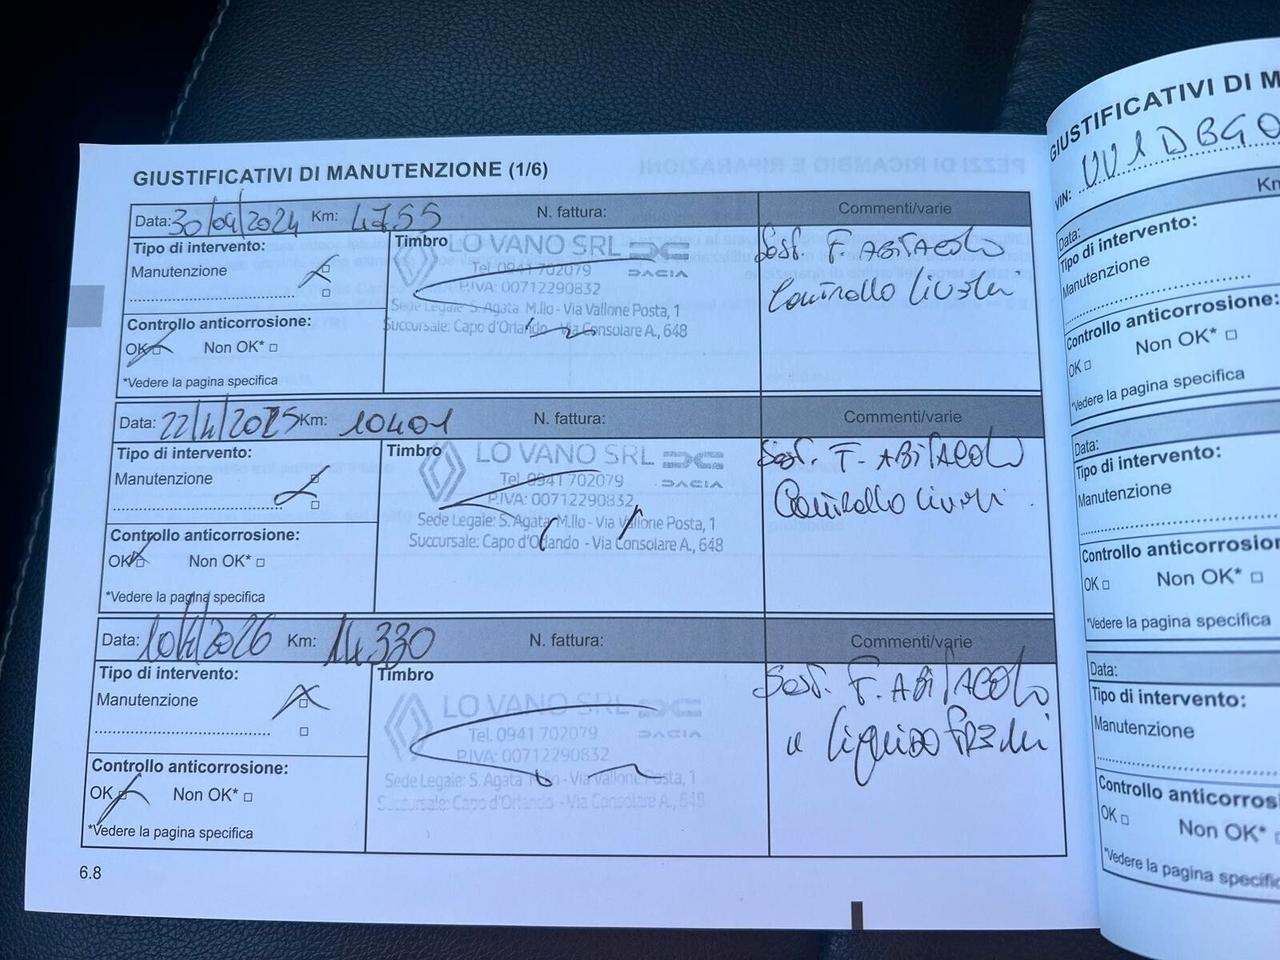 GIUSTIFICATIVI DI MANUTENZIONE (1/6)
Data: 30/04/2024 Km: 4755 N. fattura: Commenti/varie
Tipo di intervento:
Manutenzione
Controllo anticorrosione:
OK Non OK*
*Vedere la pagina specifica
Timbro LO VANO SRL
Tel. 0941 702079 DACIA
P.IVA: 00712290832
Sede Legale: S. Agata M.llo - Via Vallone Posta, 1
Succursale: Capo d'Orlando - Via Consolare A., 648
Sost. F. ABITACOLO
Controllo livelli
Data: 22/4/2025 Km: 10401 N. fattura: Commenti/varie
Tipo di intervento:
Manutenzione
Controllo anticorrosione:
OK Non OK*
*Vedere la pagina specifica
Timbro LO VANO SRL
Tel. 0941 702079 DACIA
P.IVA: 00712290832
Sede Legale: S. Agata M.llo - Via Vallone Posta, 1
Succursale: Capo d'Orlando - Via Consolare A., 648
Sost. F. ABITACOLO
Controllo livelli
Data: 10/4/2026 Km: 14330 N. fattura: Commenti/varie
Tipo di intervento:
Manutenzione
Controllo anticorrosione:
OK Non OK*
*Vedere la pagina specifica
Timbro
LO VANO SRL
Tel. 0941 702079 DACIA
P.IVA: 00712290832
Sede Legale: S. Agata M.llo - Via Vallone Posta, 1
Succursale: Capo d'Orlando - Via Consolare A., 648
Sost. F. ABITACOLO
e liquido freni
6.8
GIUSTIFICATIVI DI M
VIN: UU1DBG0
Data: Km
Tipo di intervento:
Manutenzione
Controllo anticorrosione:
OK Non OK*
*Vedere la pagina specifica
Data:
Tipo di intervento:
Manutenzione
Controllo anticorrosion
OK Non OK*
*Vedere la pagina specifica
Data:
Tipo di intervento:
Manutenzione
Controllo anticorros
OK Non OK*
*Vedere la pagina specific